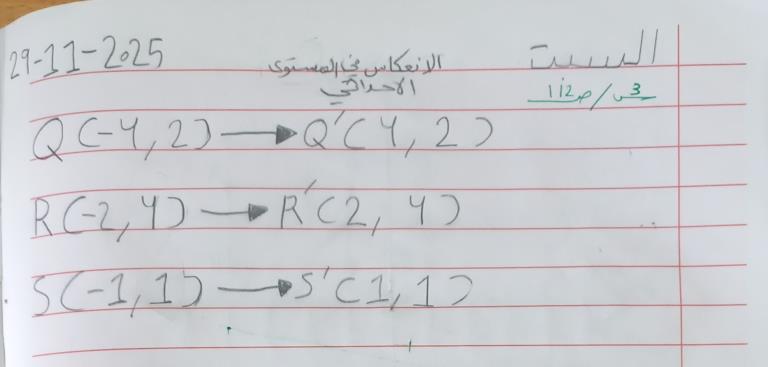 السبت
29-11-2025
الانعكاس في المستوى
الاحداثي
س3/ص112
Q(-4,2) → Q'(4,2)
R(-2,4) → R'(2,4)
S(-1,1) → S'(1,1)